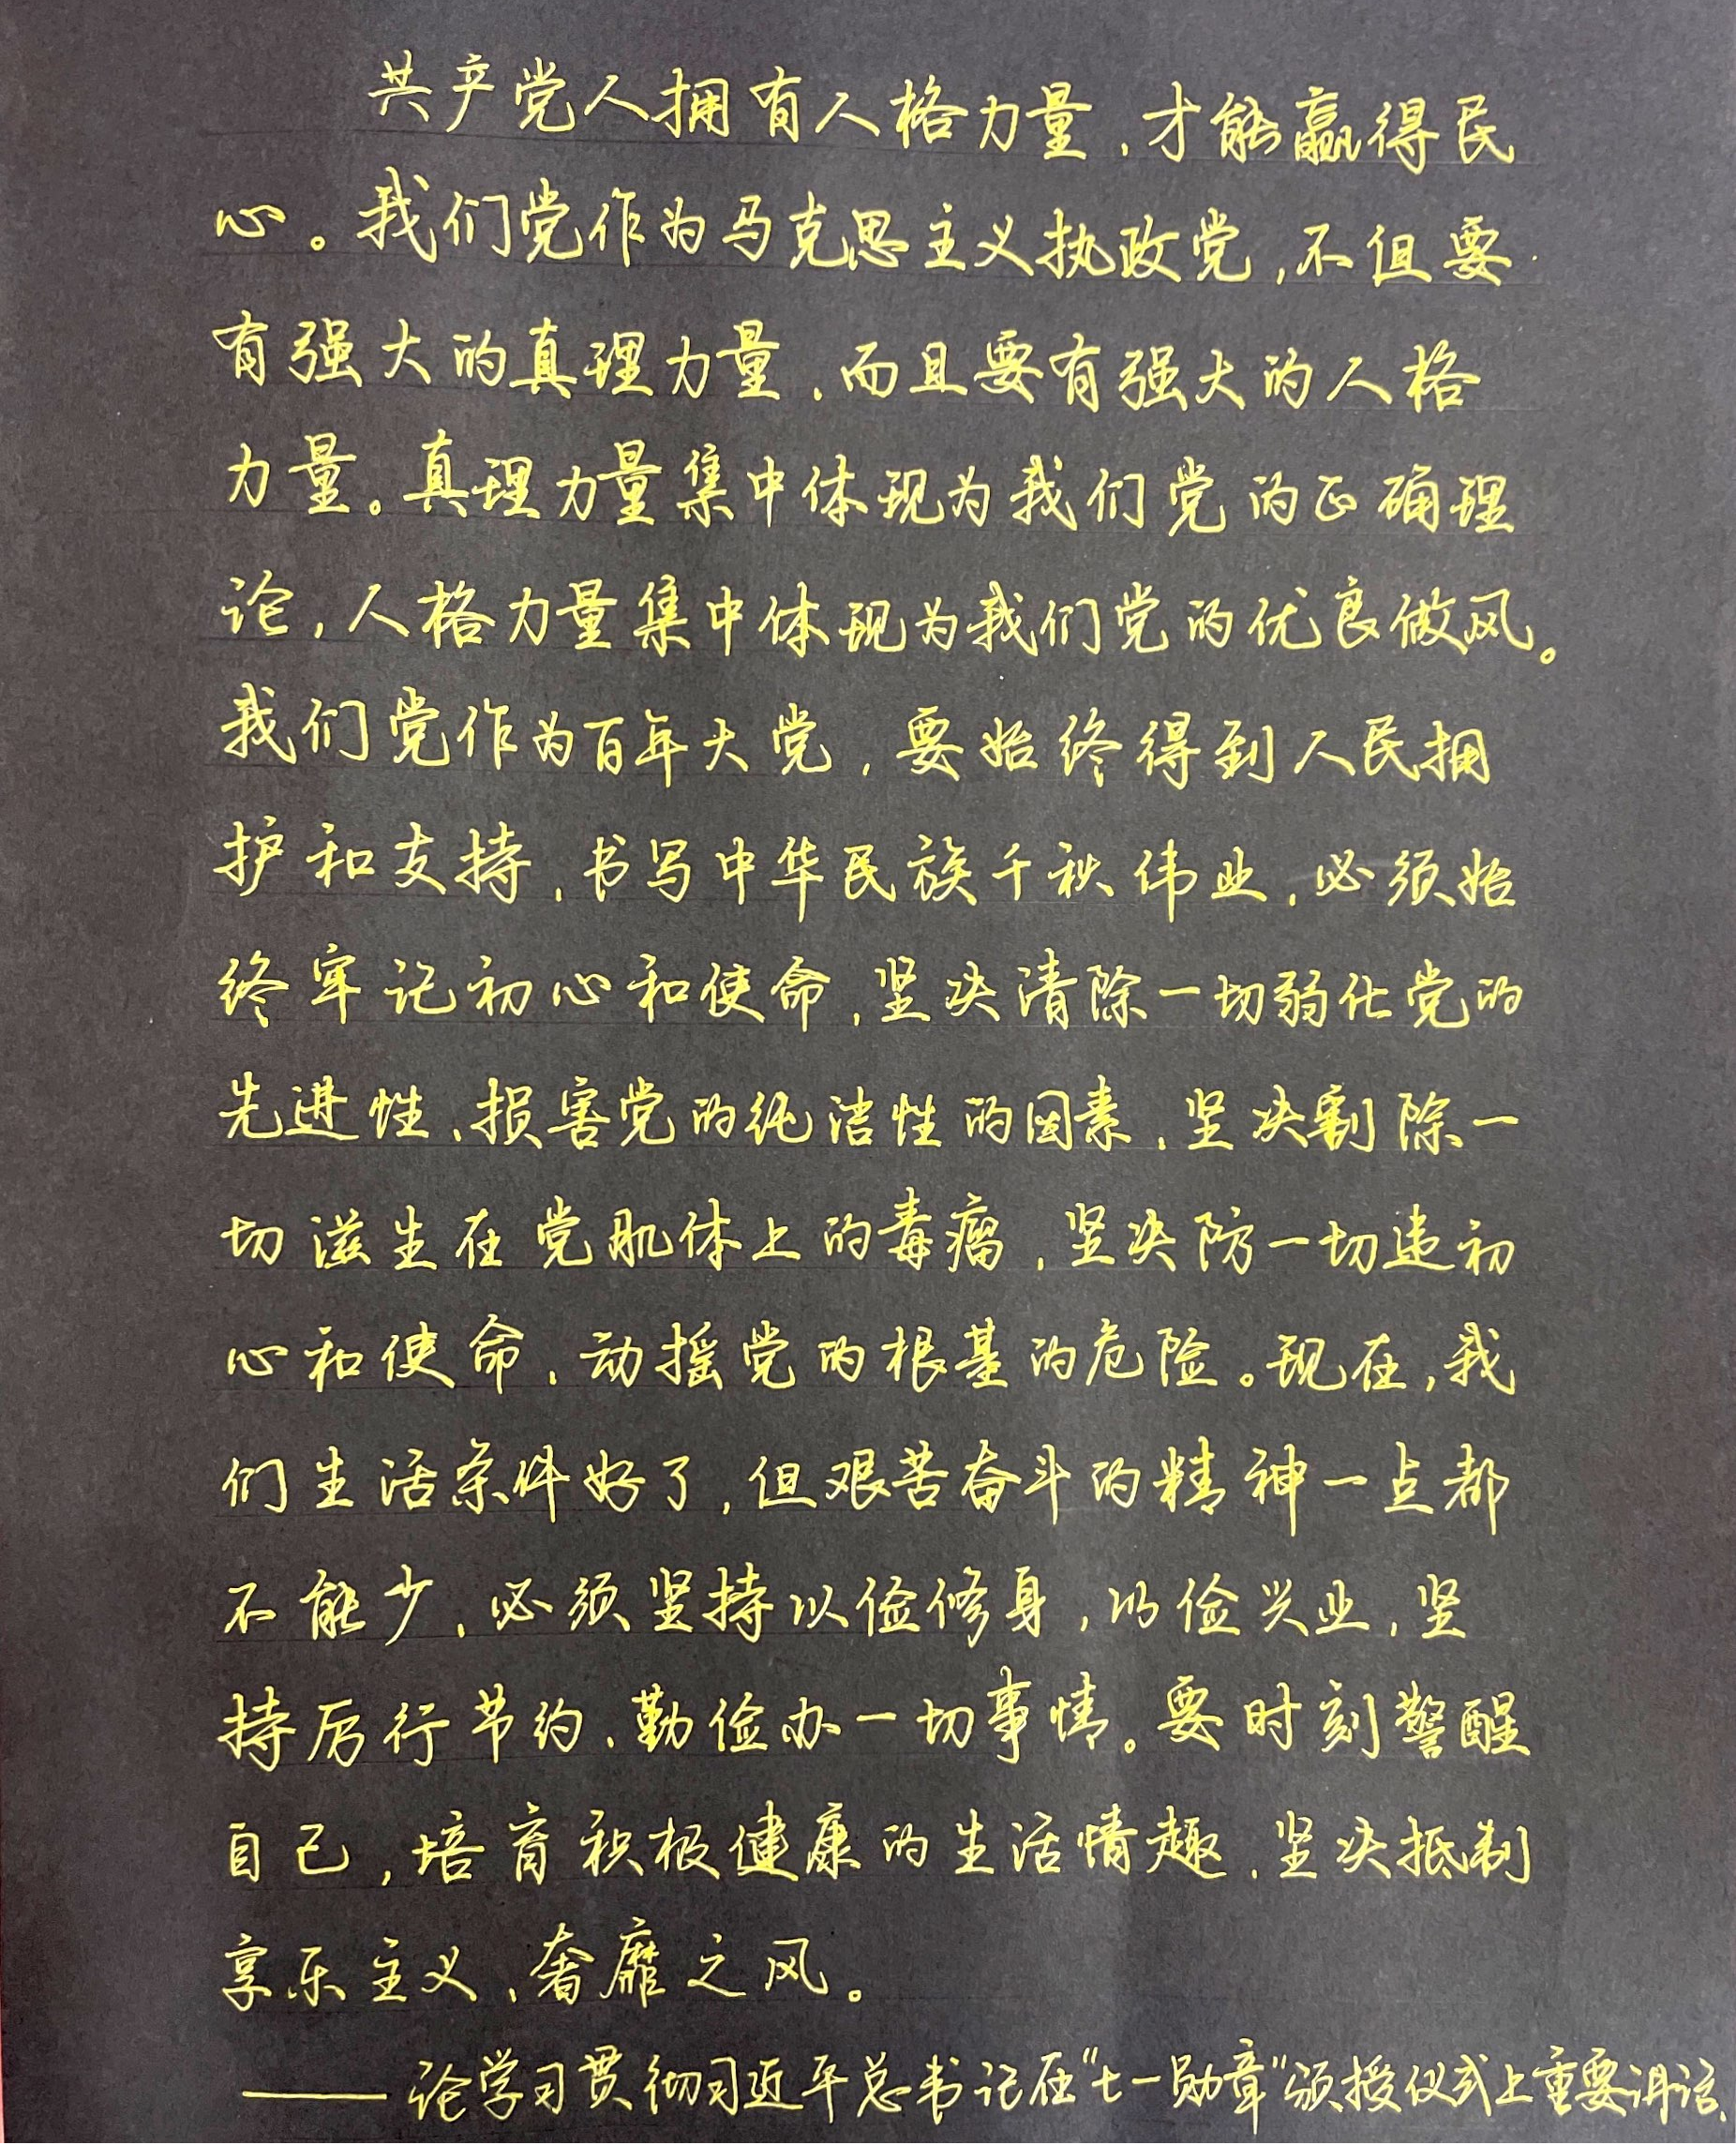 共产党人拥有人格力量，才能赢得民
心。我们党作为马克思主义执政党，不但要
有强大的真理力量，而且要有强大的人格
力量。真理力量集中体现为我们党的正确理
论，人格力量集中体现为我们党的优良做风。
我们党作为百年大党，要始终得到人民拥
护和支持，书写中华民族千秋伟业，必须始
终牢记初心和使命，坚决清除一切弱化党的
先进性、损害党的纯洁性的因素，坚决割除一
切滋生在党肌体上的毒瘤，坚决防一切违初
心和使命、动摇党的根基的危险。现在，我
们生活条件好了，但艰苦奋斗的精神一点都
不能少，必须坚持以俭修身，以俭兴业，坚
持厉行节约、勤俭办一切事情。要时刻警醒
自己，培育积极健康的生活情趣，坚决抵制
享乐主义、奢靡之风。
——论学习贯彻习近平总书记在“七一勋章”颁授仪式上重要讲话.